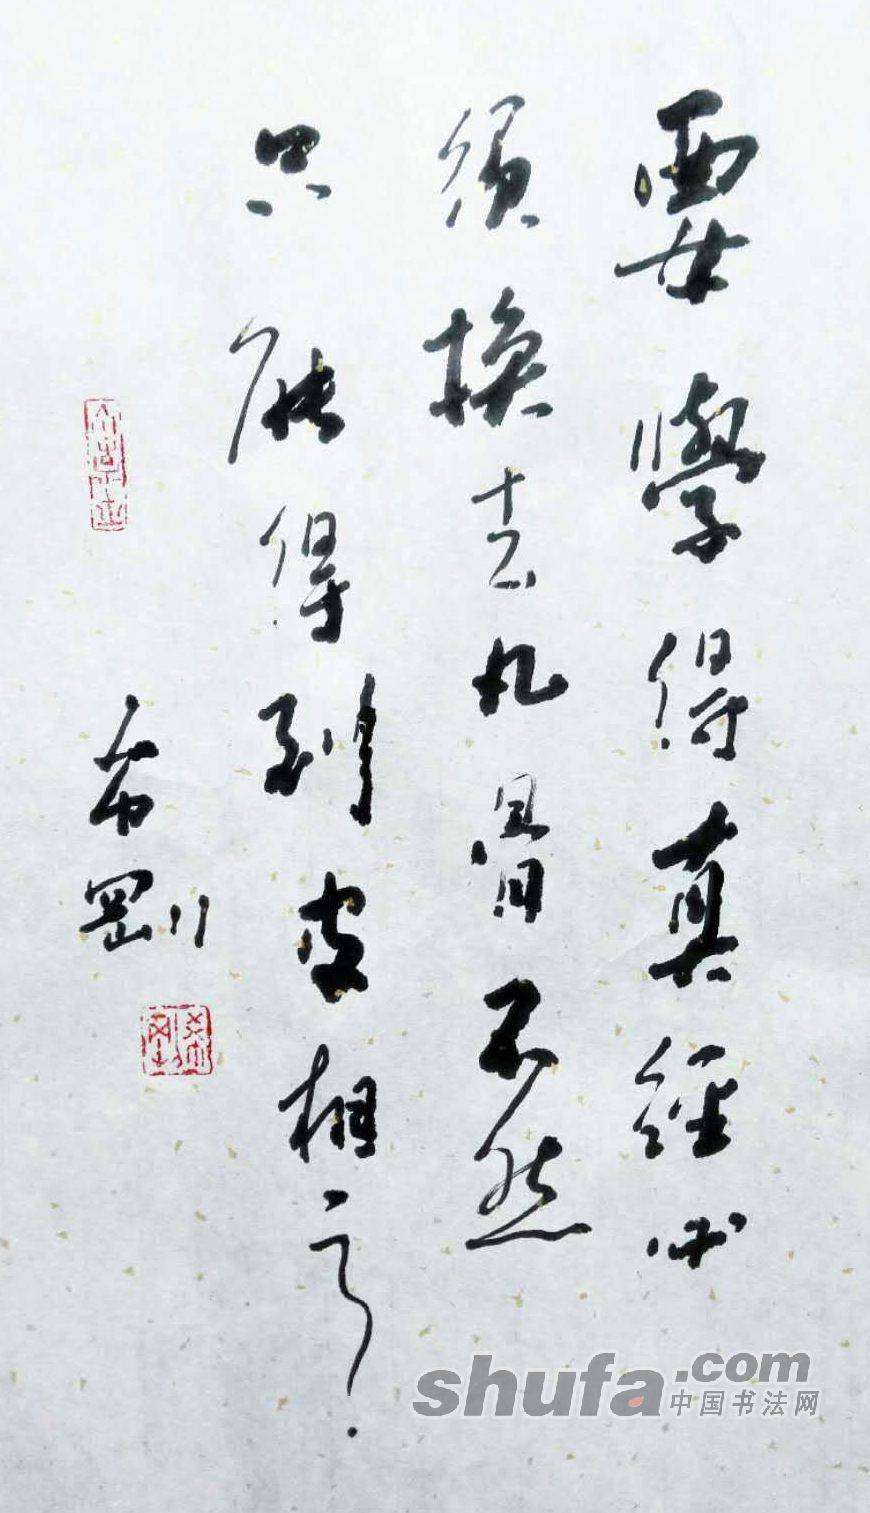 要學得真經必
須換去凡骨不然
只能得到皮相
希剛
shufa.com
中国书法网